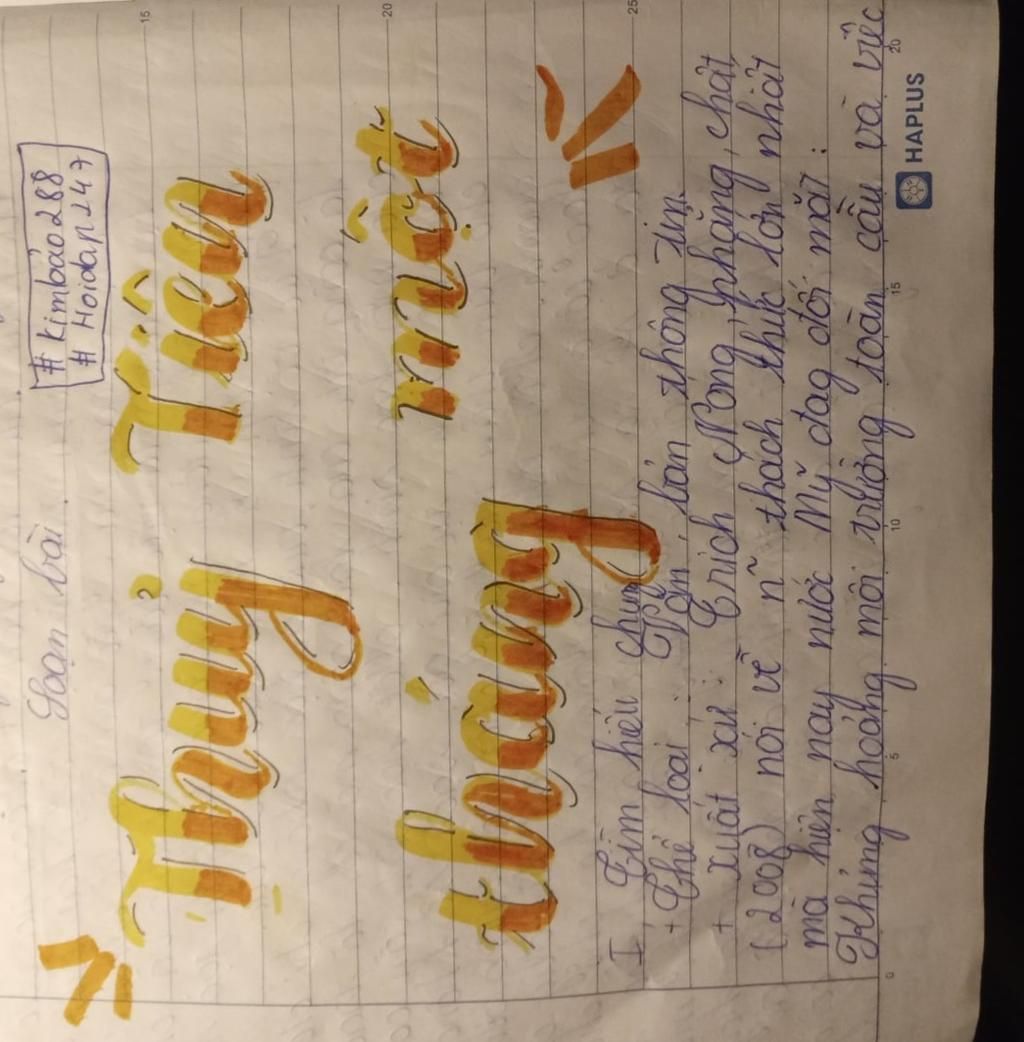 #kimbảo288
# Hoidap247
Soạn bài
Thủy Tiên
tháng một
I Tìm hiểu chung
+ Thể loại : Văn bản thông tin.
+ xuất xứ : Trích Nóng, phẳng, chật
(2008) nói về n~ thách thức lớn nhất
mà hiện nay nước Mỹ đag đối mặt :
Khủng hoảng môi trường toàn cầu và việc
0 5 10 15 20
15 20 25
HAPLUS